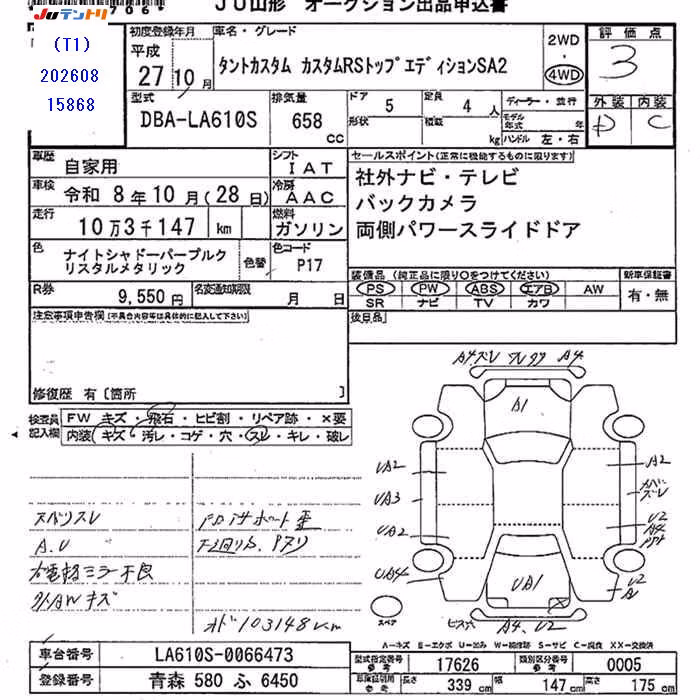 JUテントリ JU山形 オークション出品申込書
(T1)
202608
15868
初度登録年月 平成 27年 10月
車名・グレード
タントカスタム カスタムRSトップエディションSA2
2WD
・
4WD
評価点
3
型式 DBA-LA610S
排気量 658 cc
ドア 5 形状
定員 4 人 積載 kg
ディーラー・並行
モデル年式 年
ハンドル 左・右
外装 内装
D C
車歴 自家用
シフト IAT
車検 令和 8年 10月 (28日)
冷房 AAC
走行 10万3千147 km
燃料 ガソリン
色 ナイトシャドーパープルク
リスタルメタリック
色替
色コード P17
R券 9,550円
名変通知期限 月 日
セールスポイント(正常に機能するものに限ります)
社外ナビ・テレビ
バックカメラ
両側パワースライドドア
装備品 (純正品に限り○をつけてください)
PS PW ABS エアB AW
SR ナビ TV カワ
新車保証書
有・無
後日品
注意事項申告欄 (不具合内容等は具体的に記入して下さい)
修復歴 有 [箇所 ]
検査員
記入欄
FW キズ・飛石・ヒビ割・リペア跡・×要
内装 キズ・汚レ・コゲ・穴・スレ・キレ・破レ
A.U
外AWキズ
オド103148km
A4 スレ A4
A1
UA2
UA3
UA2
UA4
A2
U2
A4
U2
A
UA1
A4. U2
スペア
A=キズ E=エクボ U=凹み W=補修跡 S=サビ C=腐食 XX=交換済
車台番号 LA610S-0066473
登録番号 青森 580 ふ 6450
型式指定番号 参考 17626
類別区分番号 参考 0005
車検証引用 参考 長さ 339 cm 幅 147 cm 高さ 175 cm